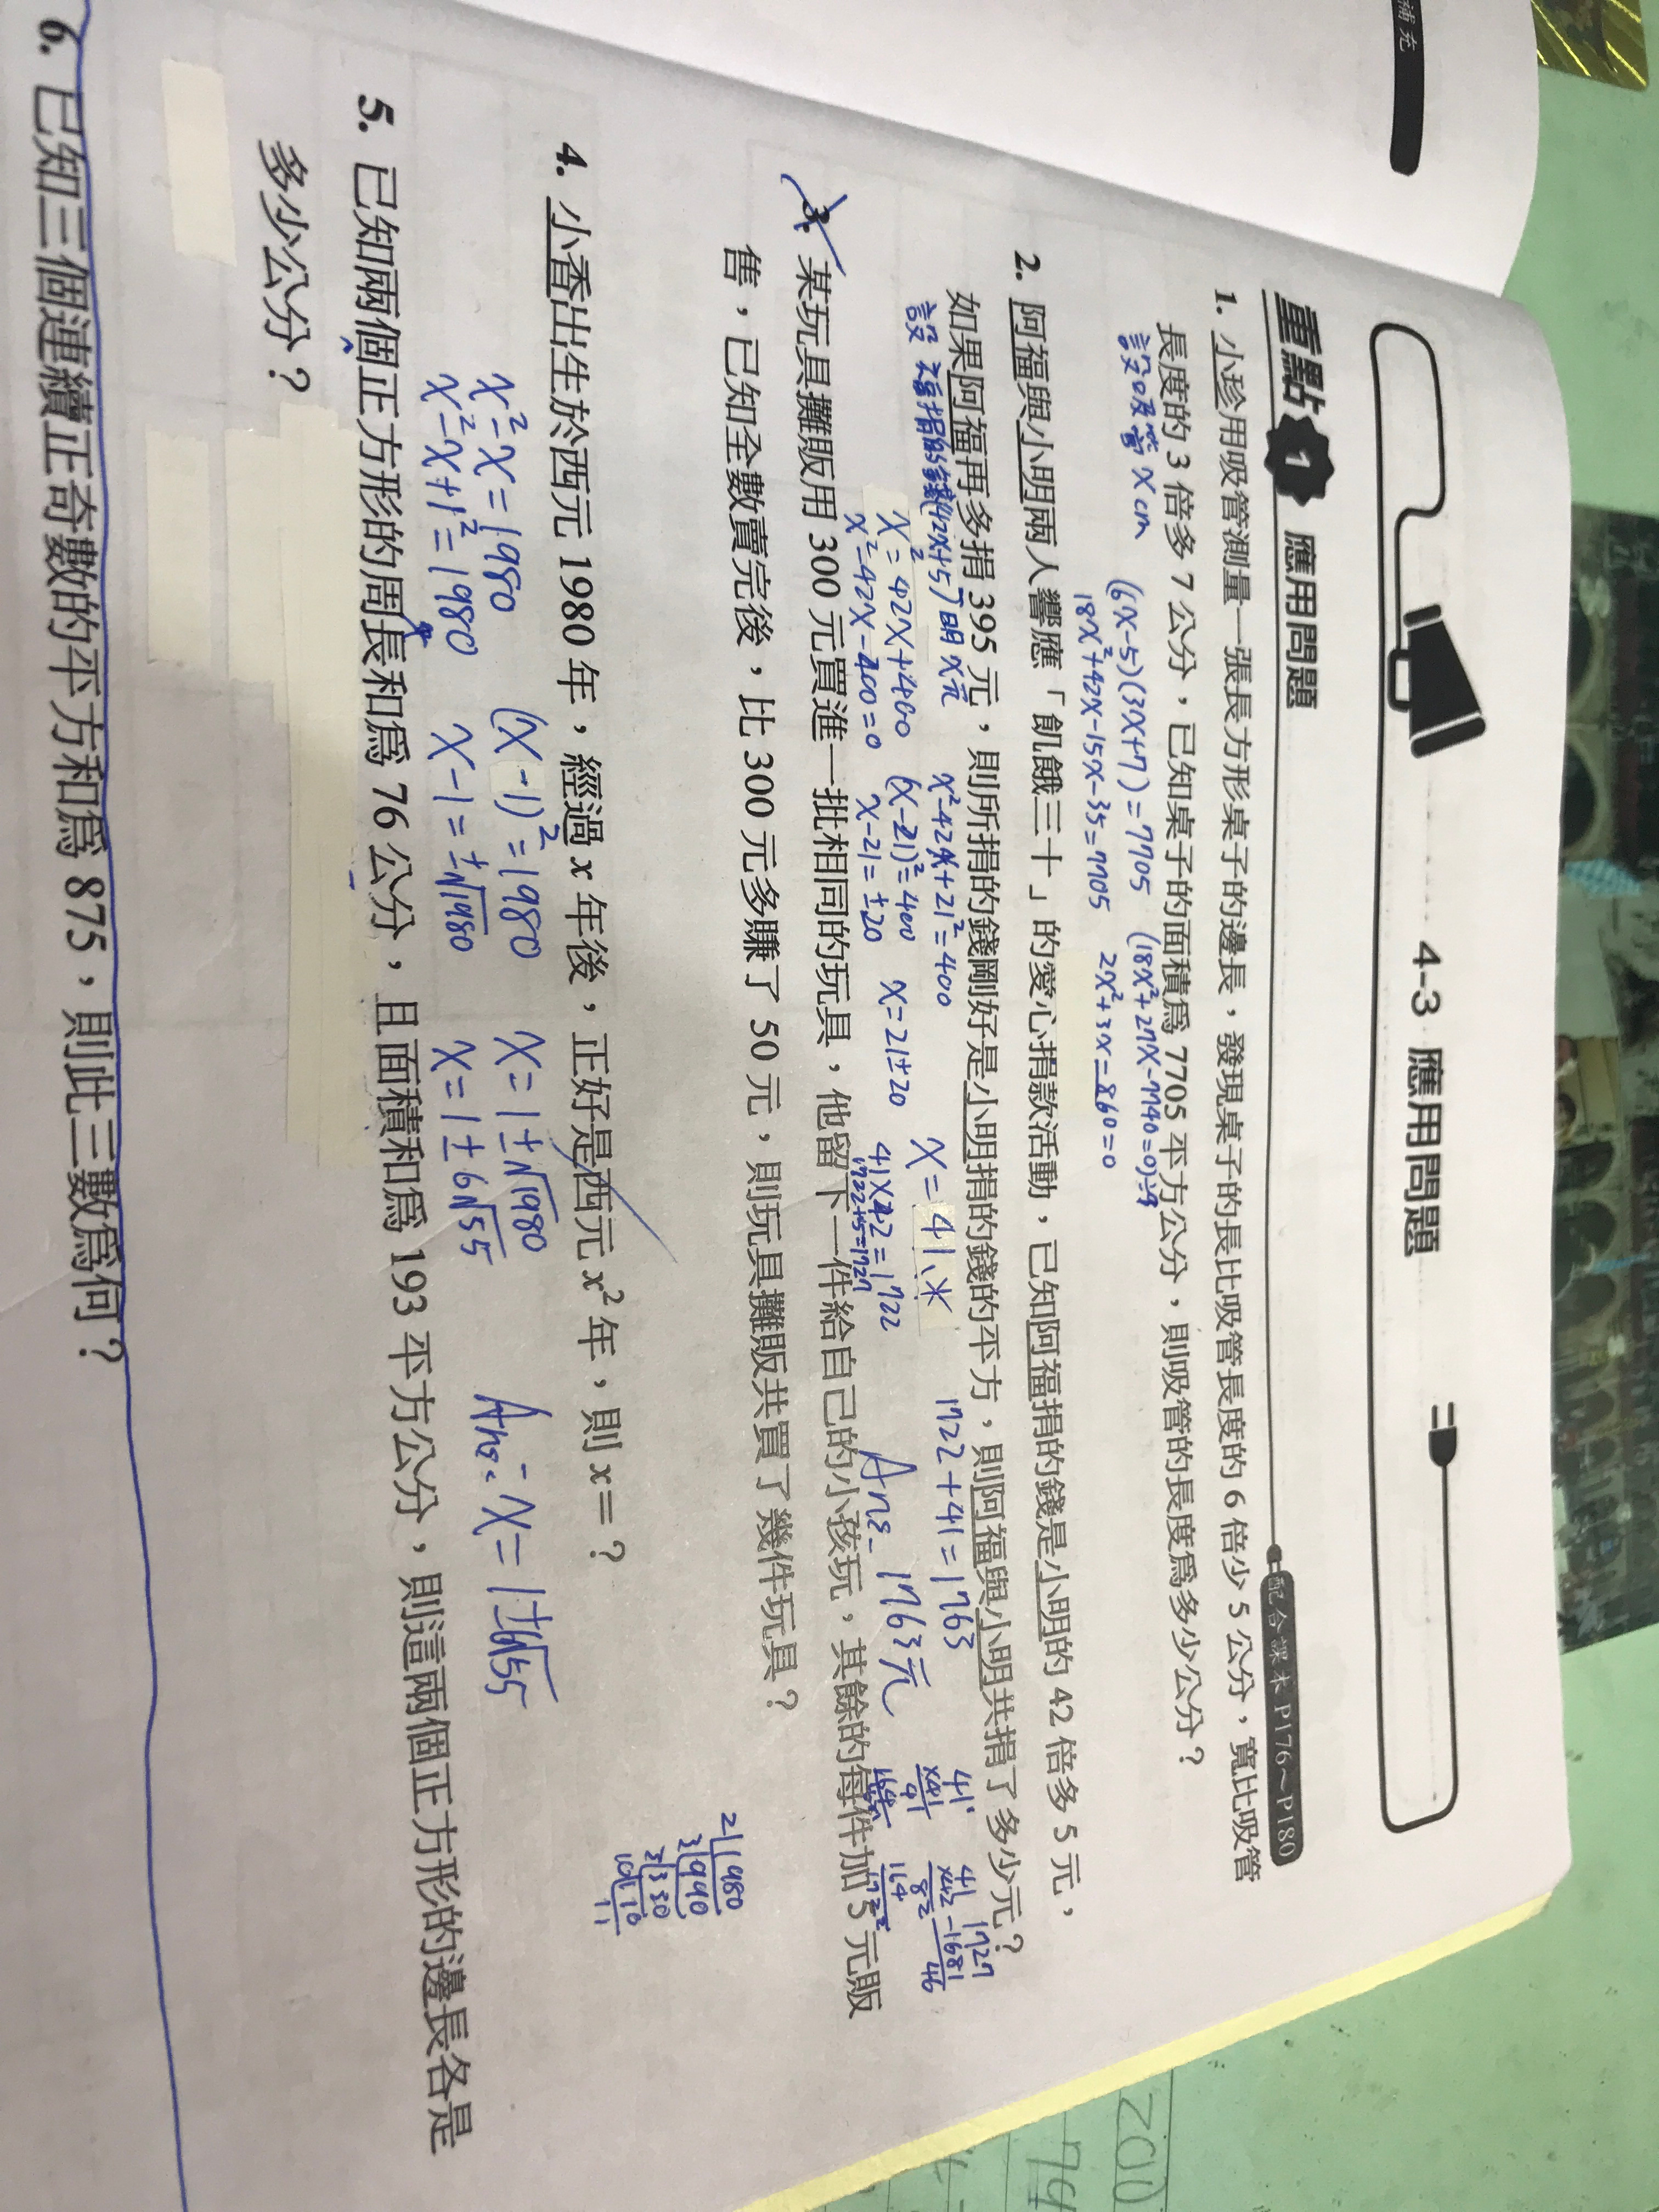 補充
4-3 應用問題
重點 1 應用問題
配合課本 P176~P180
1. 小珍用吸管測量一張長方形桌子的邊長，發現桌子的長比吸管長度的 6 倍少 5 公分，寬比吸管
長度的 3 倍多 7 公分，已知桌子的面積為 7705 平方公分，則吸管的長度為多少公分？
設吸管 x cm
(6x-5)(3x+7)=7705
18x²+42x-15x-35=7705
(18x²+27x-7740=0)÷9
2x²+3x=860=0
2. 阿福與小明兩人響應「飢餓三十」的愛心捐款活動，已知阿福捐的錢是小明的 42 倍多 5 元，
如果阿福再多捐 395 元，則所捐的錢剛好是小明捐的錢的平方，則阿福與小明共捐了多少元？
設 福捐的錢(42x+5) 明 x元
x²=42x+400
x²-42x-400=0
x²-42x+21²=400
(x-21)²=400
x-21=±20
x=21±20
x=41
41×42=1722
1722+5=1727
1722+41=1763
Ans: 1763元
3. 某玩具攤販用 300 元買進一批相同的玩具，他留下一件給自己的小孩玩，其餘的每件加 5 元販
售，已知全數賣完後，比 300 元多賺了 50 元，則玩具攤販共買了幾件玩具？
4. 小香出生於西元 1980 年，經過 x 年後，正好是西元 x² 年，則 x = ？
x²-x=1980
x²-x+1²=1980
(x-1)²=1980
x-1=±√1980
x=1±√1980
x=1±6√55
Ans: x=1±6√55
2|1980
3|990
3|330
10|110
11
5. 已知兩個正方形的周長和為 76 公分，且面積和為 193 平方公分，則這兩個正方形的邊長各是
多少公分？
6. 已知三個連續正奇數的平方和為 875，則此三數為何？